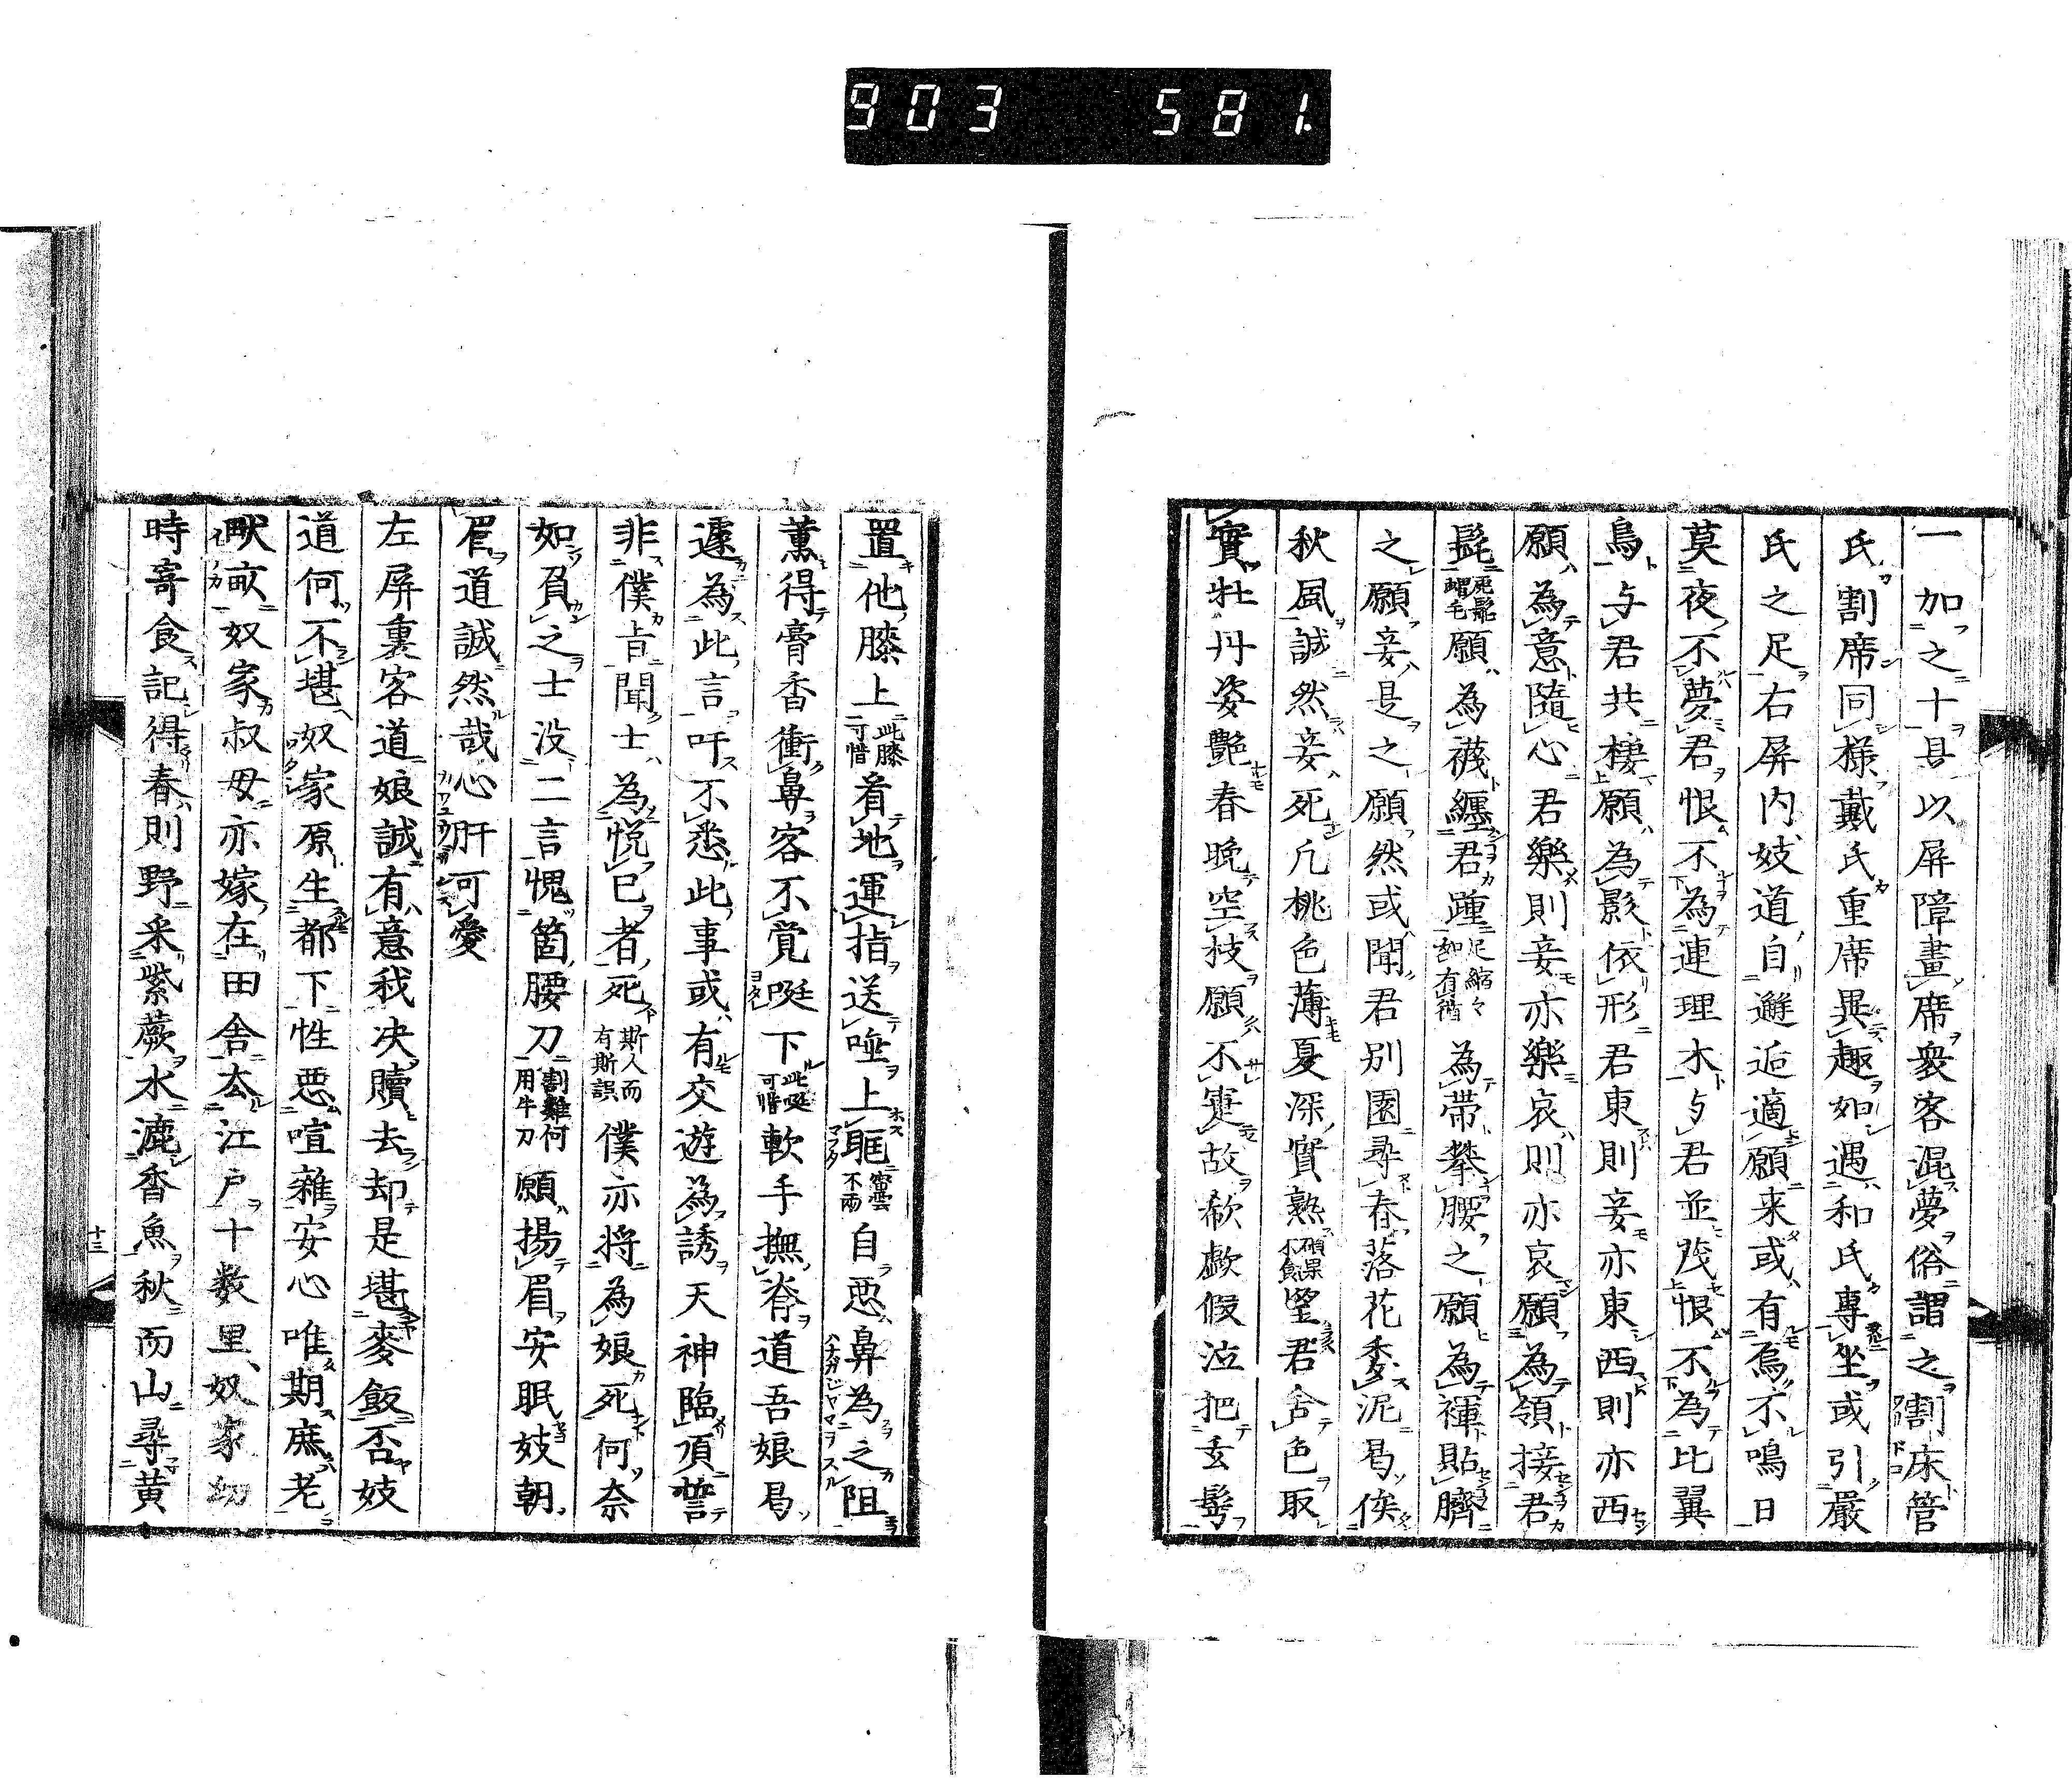 903 581.
一加之十具以屏障畫席衆客混夢俗謂之割床管
氏割席同様戴氏重席異趣如遇和氏專坐或引嚴
氏之足右屏内妓道自邂逅適願来或有烏不鳴日
莫夜不夢君恨不為連理木与君並茂恨不為比翼
鳥与君共棲願為影依形君東則妾亦東西則亦西
願為意隨心君樂則妾亦樂哀則亦哀願為領接君
髭 願為襪纏君踵足縮々如有循為帶攀腰之願為褌貼臍
之願妾是之願然或聞君别園尋春落花委泥曷俟
秋風誠然妾死凡桃色薄夏深實熟碩果不食 君含色取
實牡丹姿艶春晩空枝願不寔故欷歔假泣把玄髩
置他膝上此膝可惜着地運指送唾上眶密雲不雨自惡鼻為之阻
薫得膏香衝鼻客不覚唌下此唌可惜軟手撫脊道吾娘曷
遽為此言吁不悉此事或有交遊為誘天神臨頂誓
非僕旨聞士為悦已者死斯人而有斯誤僕亦将為娘死何奈
如負之士没二言愧箇腰刀割雞何用牛刀願揚眉安眠妓朝
眉道誠然哉心肝可愛
左屏裏客道娘誠有意我决贖去却是堪麥飯否妓
道何不堪奴家原生都下性惡喧雜安心唯期庶老
畎畝奴家叔母亦嫁在田舎厺江戸十数里奴家幼
時寄食記得春則野采紫蕨水漉香魚秋而山尋黄
十三